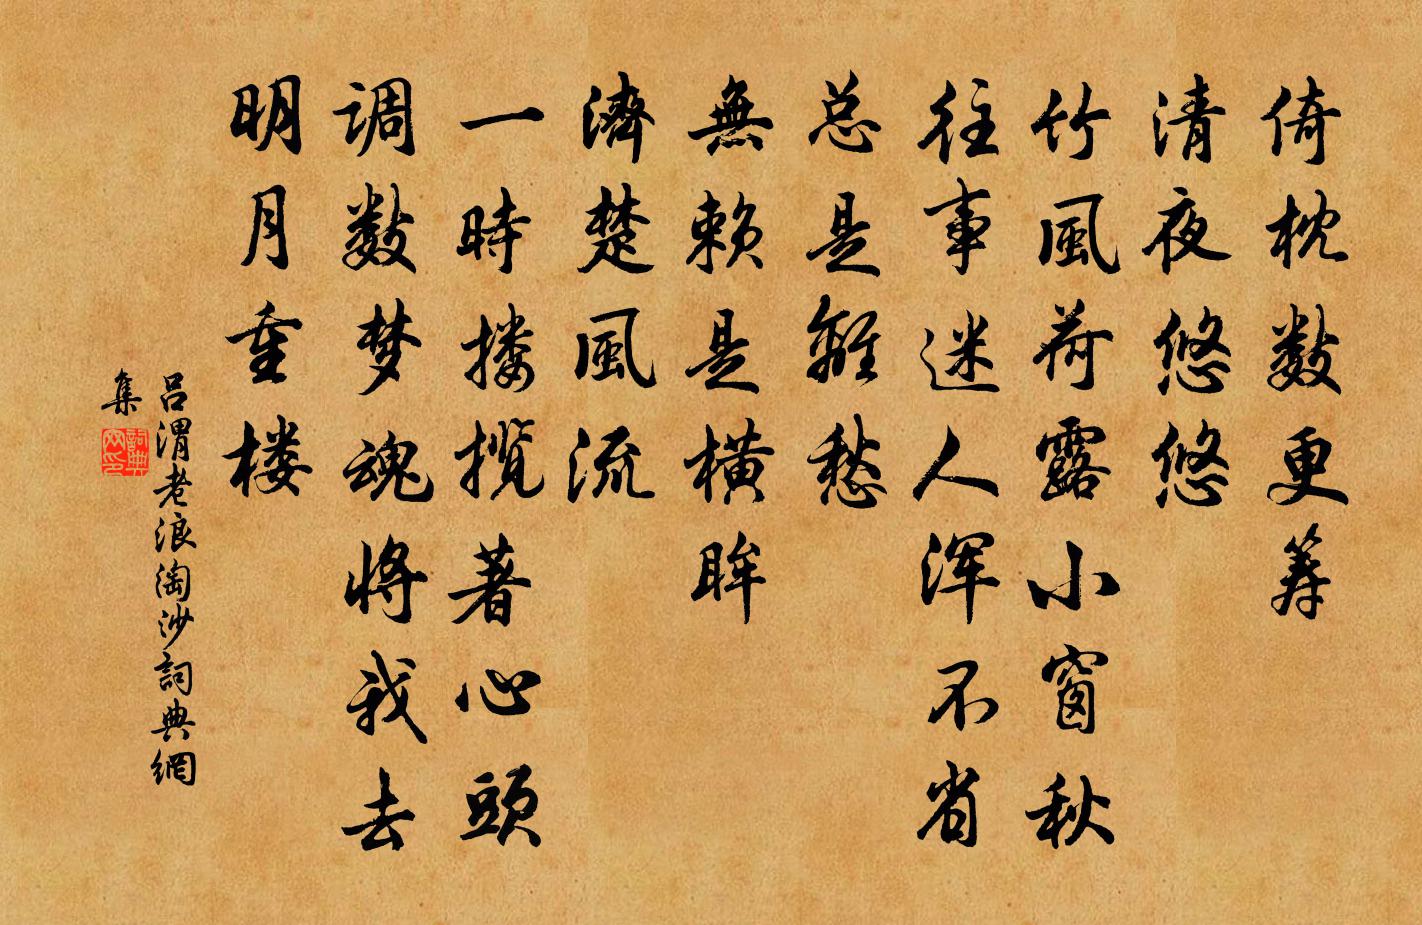 倚枕数更筹
清夜悠悠
竹風荷露小窗秋
往事迷人浑不省
总是離愁
無赖是横眸
濟楚風流
一時搂揽著心頭
调数梦魂将我去
明月重楼
吕渭老浪淘沙詞典網
集
詞典網印